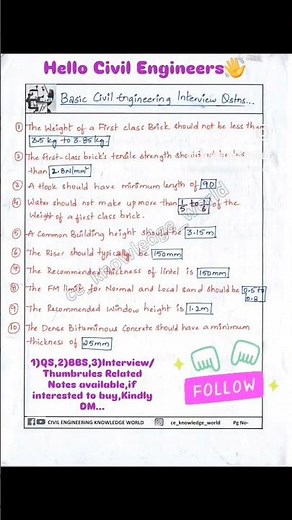 Hello Civil Engineers👋
Basic Civil Engineering Interview Qstns...
① The Weight of a First class Brick should not be less than
3.5 kg to 3.85 kg
② The first-class brick's tensile strength should not be less
than 2.8N/mm²
③ A Hook should have minimum length of 9D
④ Water should not make up more than 1/5 to 1/6 of the
Weight of a first class brick.
⑤ A Common Building height should be 3.15m
⑥ The Riser should typically be 150mm
⑦ The Recommended thickness of lintel is 150mm
⑧ The FM limit for Normal and Local sand should be
⑨ The Recommended Window height is 1.2m
⑩ The Dense Bituminous Concrete should have a minimum
thickness of 25mm
ce_knowledge_world
1)QS,2)BBS,3)Interview/
Thumbrules Related
Notes available,if
interested to buy,Kindly
DM...
FOLLOW
CIVIL ENGINEERING KNOWLEDGE WORLD ce_knowledge_world Pg No-